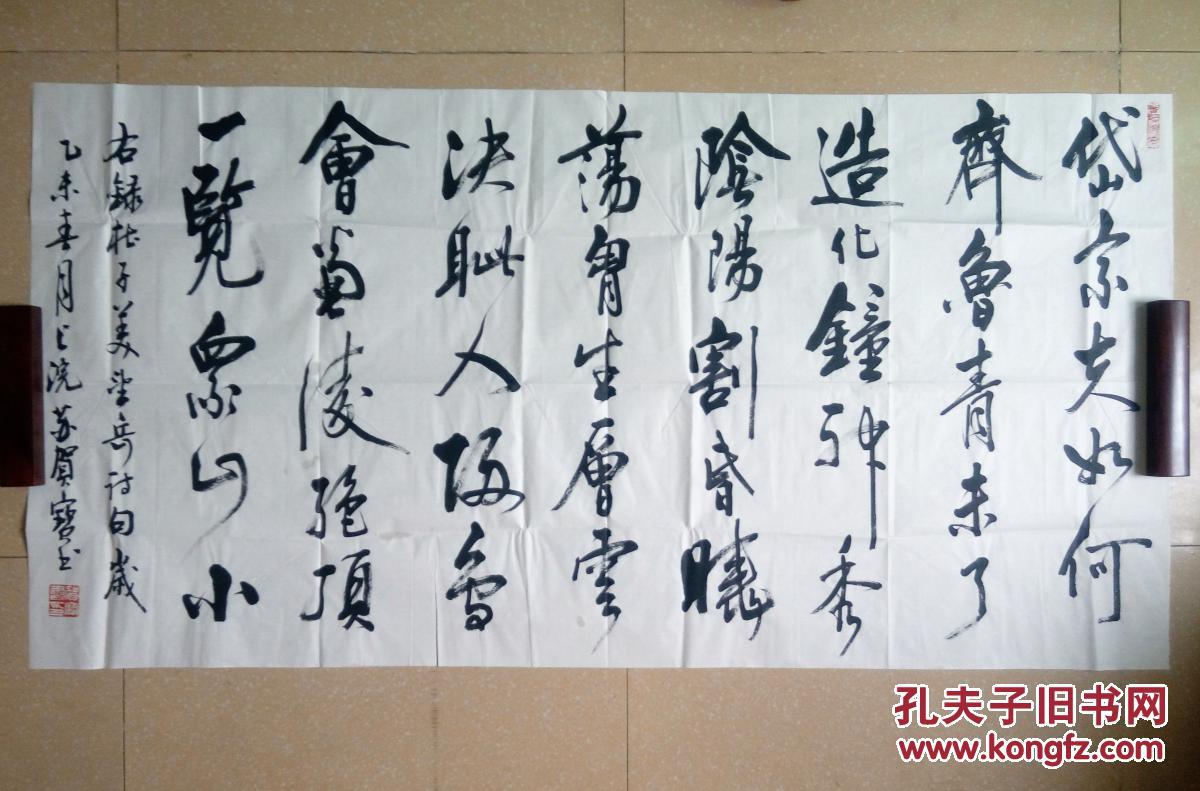 岱宗夫如何
齊魯青未了
造化鐘神秀
陰陽割昏曉
蕩胷生層雲
決眦入歸鳥
會當凌絕頂
一覽衆山小
右録杜子美望岳詩句歲
乙未春月上浣苏賀寶书
孔夫子旧书网
www.kongfz.com